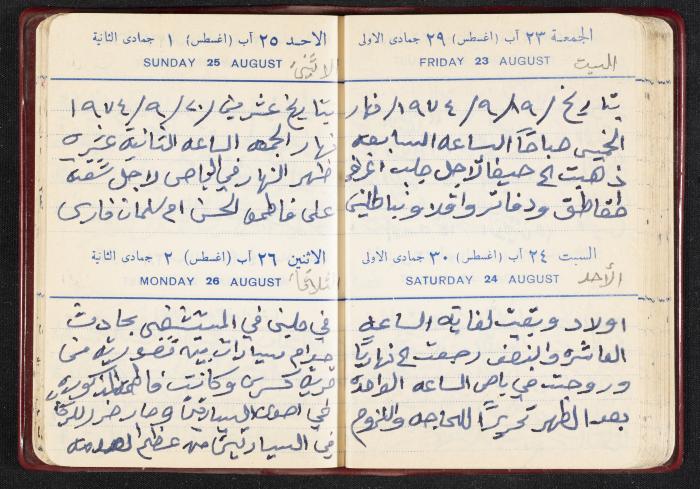 الجمعة ٢٣ آب (اغسطس) ٢٩ جمادى الاولى
FRIDAY 23 AUGUST
السبت
بتاريخ ١٩/٩/١٩٧٤ نهار
الخميس صباحًا الساعه السابعه
ذهبت الى حيفا لاجل جلب اغراض
ودفاتر واقلام
السبت ٢٤ آب (اغسطس) ٣٠ جمادى الاولى
SATURDAY 24 AUGUST
الأحد
اولاد وبقيت لغاية الساعه
العاشره والنصف رجعت الى نهاريا
وروحت في باص الساعه الواحدة
بعد الظهر تحريرًا للحاجه واللزوم
الاحد ٢٥ آب (اغسطس) ١ جمادى الثانية
SUNDAY 25 AUGUST
الاثنين
بتاريخ عشرين/٩/١٩٧٤
نهار الجمعه الساعه الثانية عشره
ظهر النهار في الباص لاجل شقة
على فاطمه الحسن ام سلمان فارس
الاثنين ٢٦ آب (اغسطس) ٢ جمادى الثانية
MONDAY 26 AUGUST
الثلاثاء
في المستشفى بحادث
سيارات بيه
وكانت فاطمه المذكوره
في السيارتين من عظم الصدمه